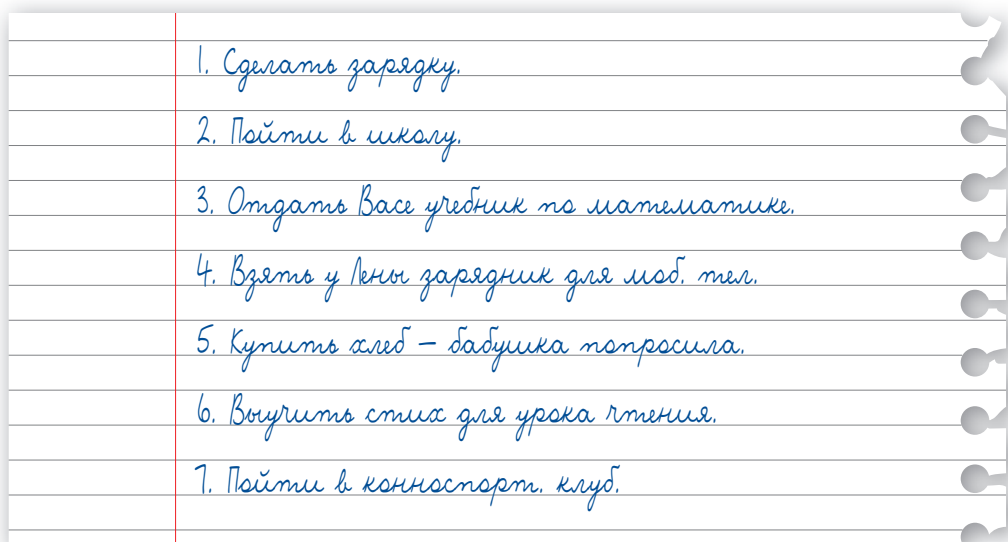 1. Сделать зарядку.
2. Пойти в школу.
3. Отдать Васе учебник по математике.
4. Взять у Лены зарядник для моб. тел.
5. Купить хлеб – бабушка попросила.
6. Выучить стих для урока чтения.
7. Пойти в конноспорт. клуб.